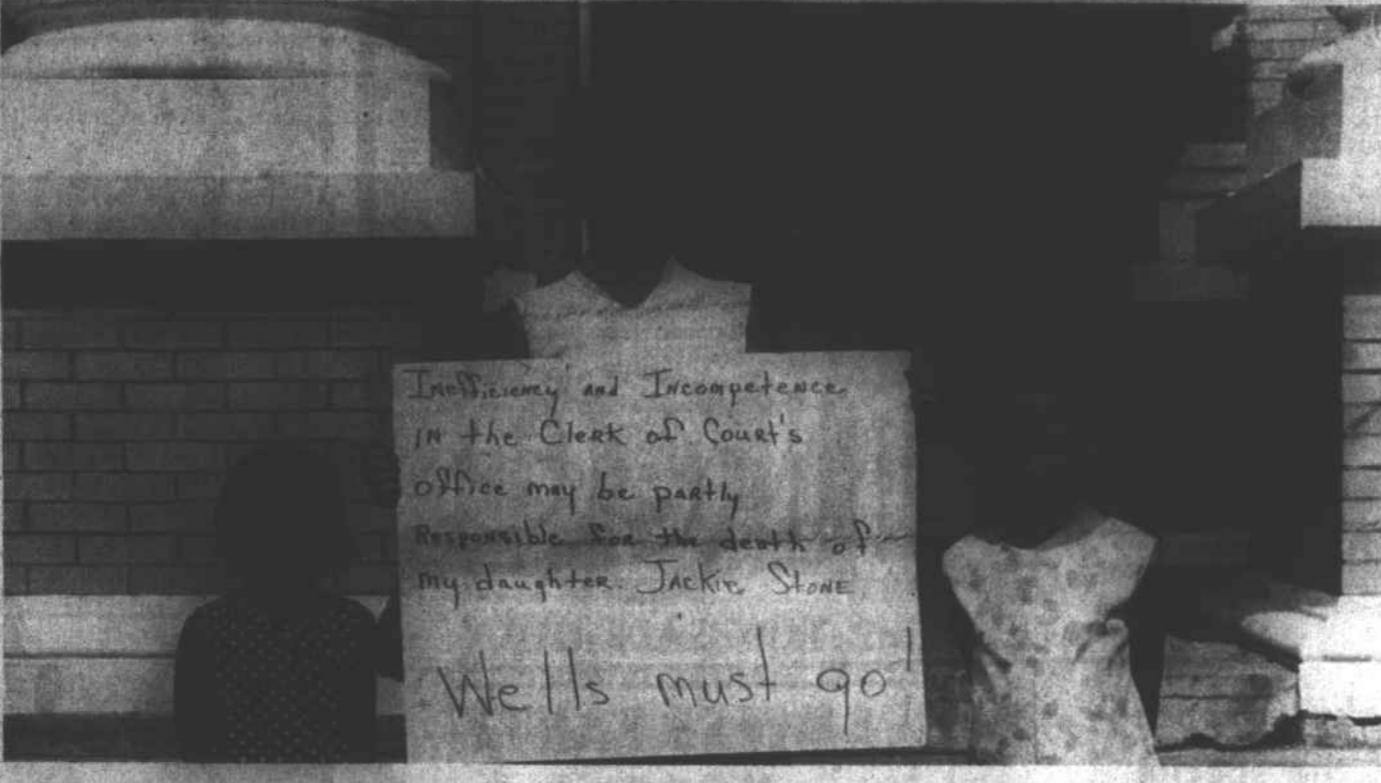 Inefficiency and Incompetence
IN the Clerk of Court's
office may be partly
Responsible for the death of
my daughter. Jackie Stone
Wells must go!